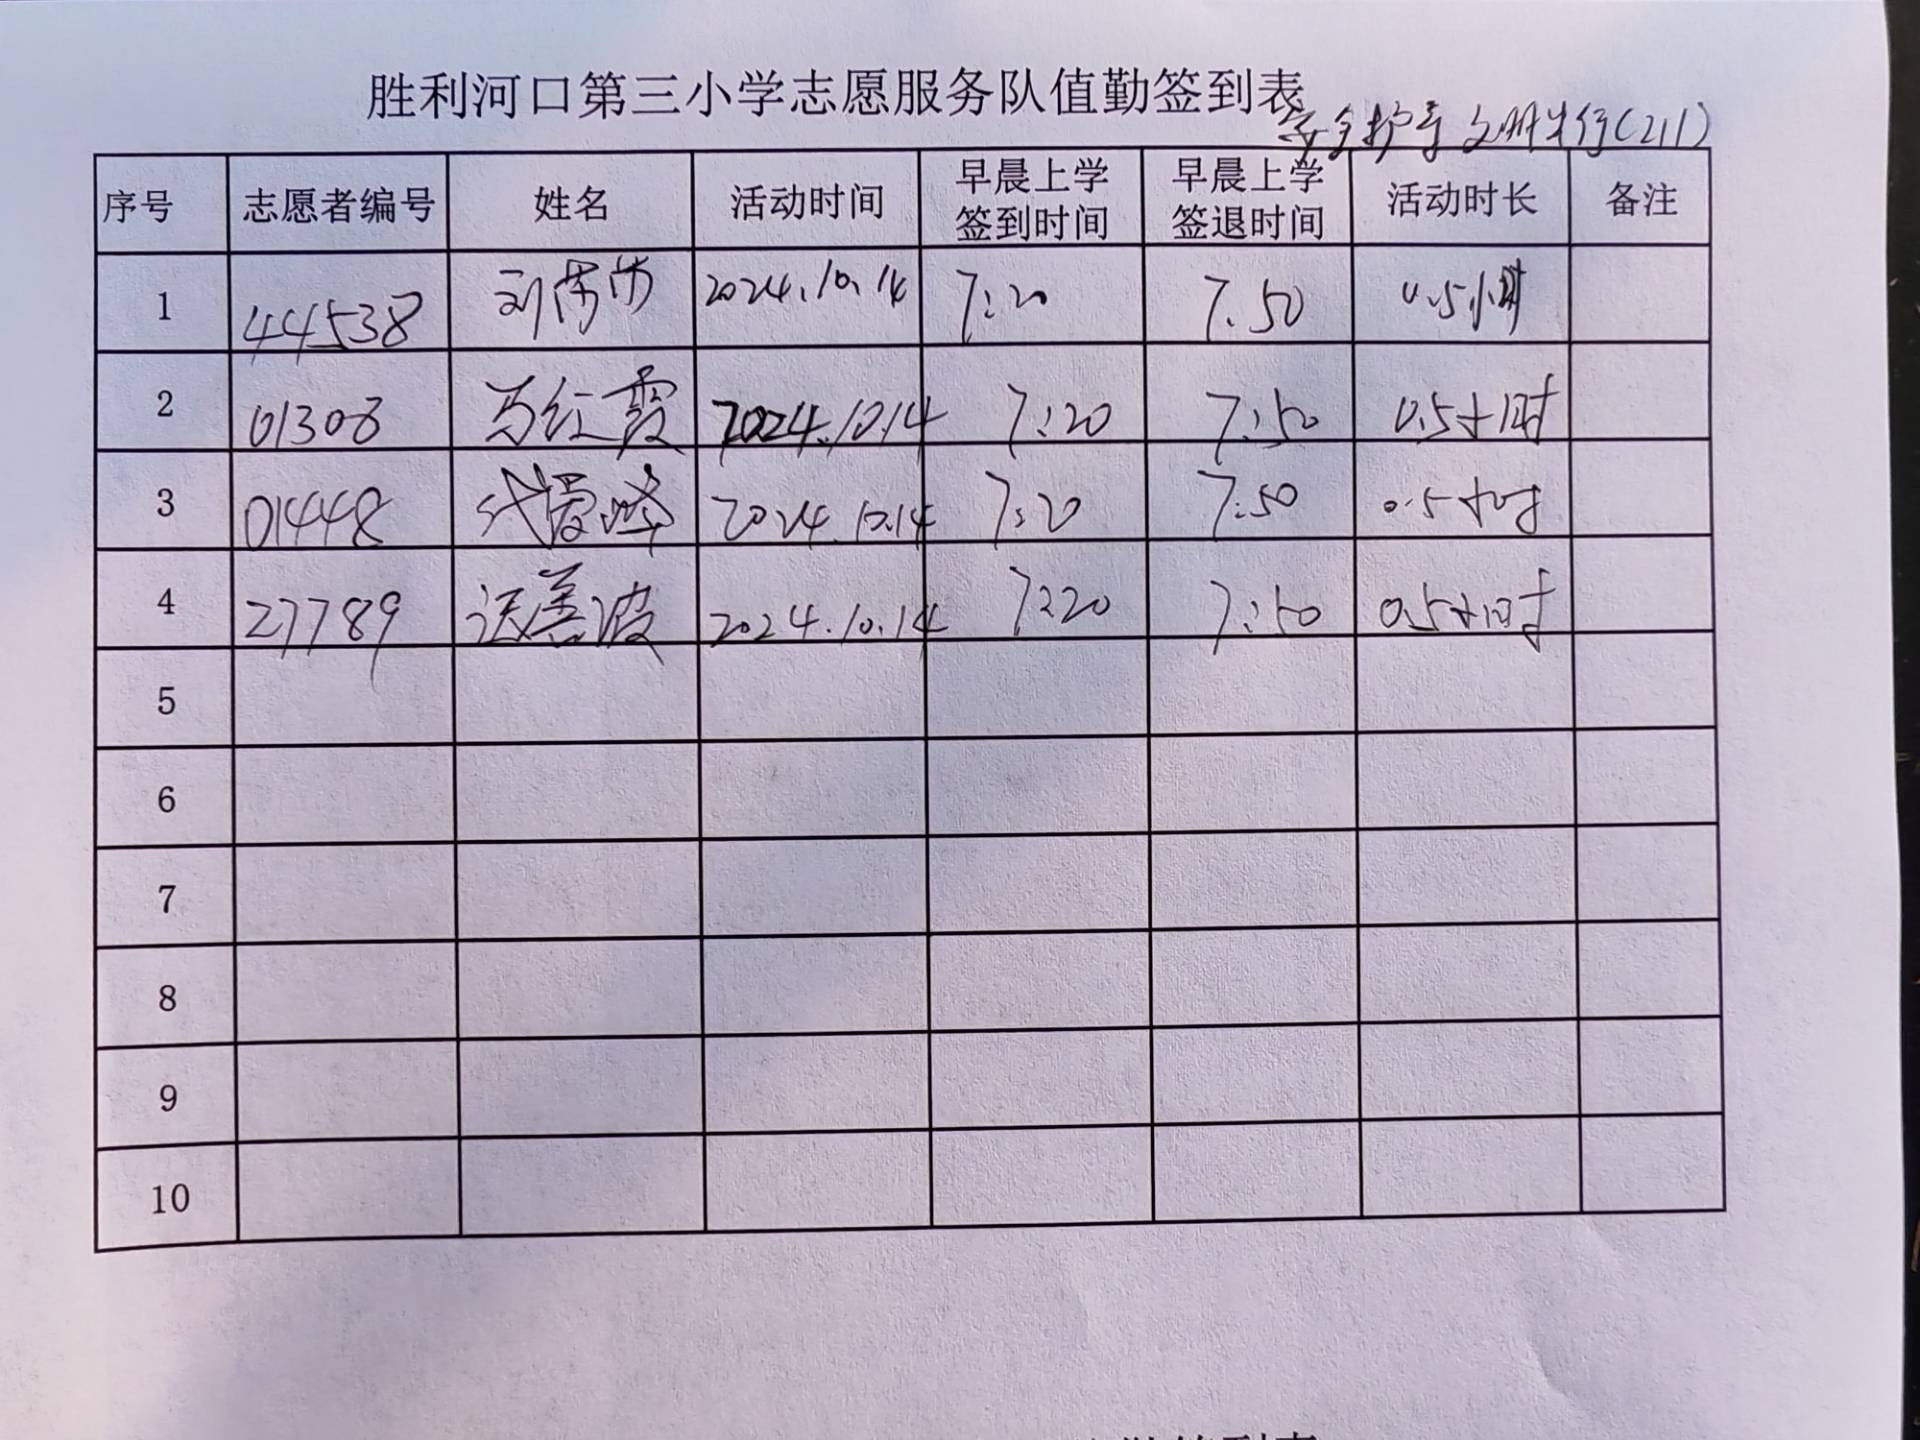 胜利河口第三小学志愿服务队值勤签到表
安全护导 文明先行(211)
序号 志愿者编号 姓名 活动时间 早晨上学签到时间 早晨上学签退时间 活动时长 备注
1 44538 刘 2024.10.14 7:20 7:50 0.5小时
2 01308 马红霞 2024.10.14 7:20 7:50 0.5小时
3 01448 代爱峰 2024.10.14 7:20 7:50 0.5小时
4 27789 善波 2024.10.14 7:20 7:50 0.5小时
5
6
7
8
9
10